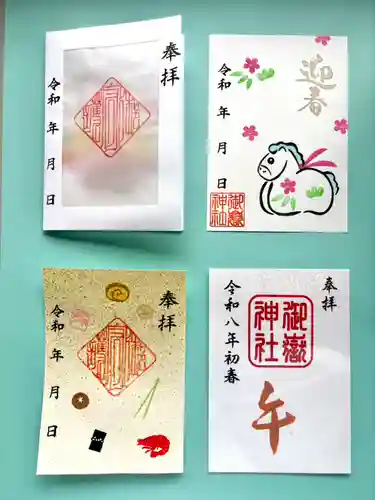 奉拝
令和 年 月 日
迎春
令和 年 月 日
御嶽
神社
奉拝
令和 年 月 日
奉拝
御嶽
神社
令和八年初春
午